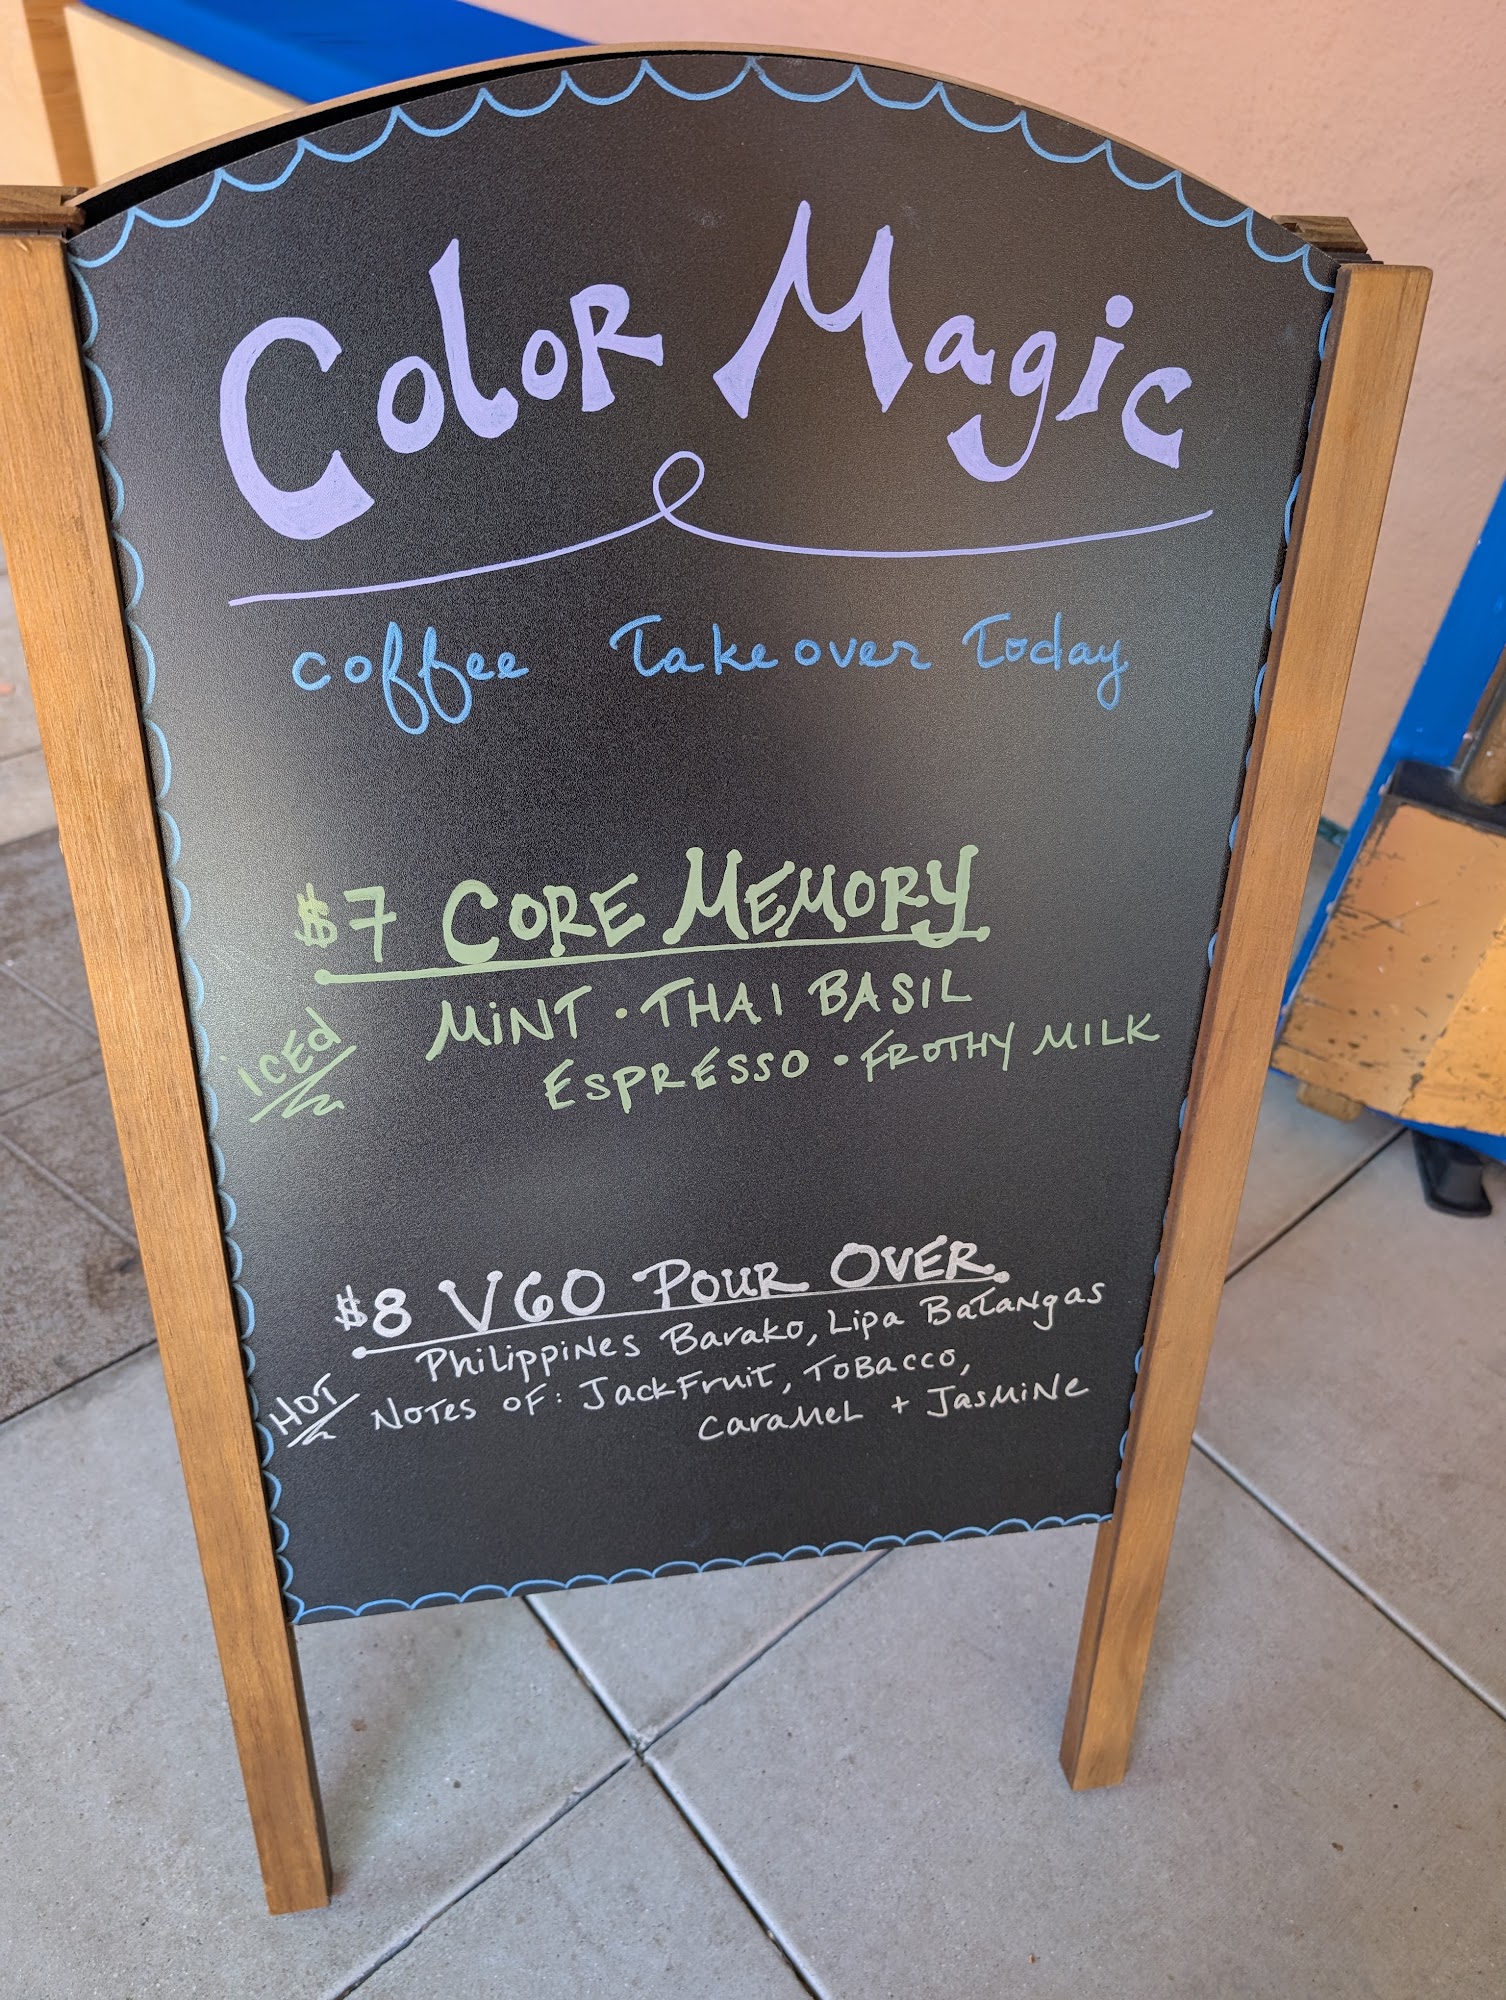 Color Magic
coffee Takeover Today
$7 CORE MEMORY
iCEd
MiNT · THAI BASIL
ESPRESSO · FROTHY MILK
$8 V60 POUR OVER
HOT
PHiLippiNES Barako, Lipa Batangas
NOTES OF: JackFruiT, TOBacco,
CaraMeL + JasMiNe